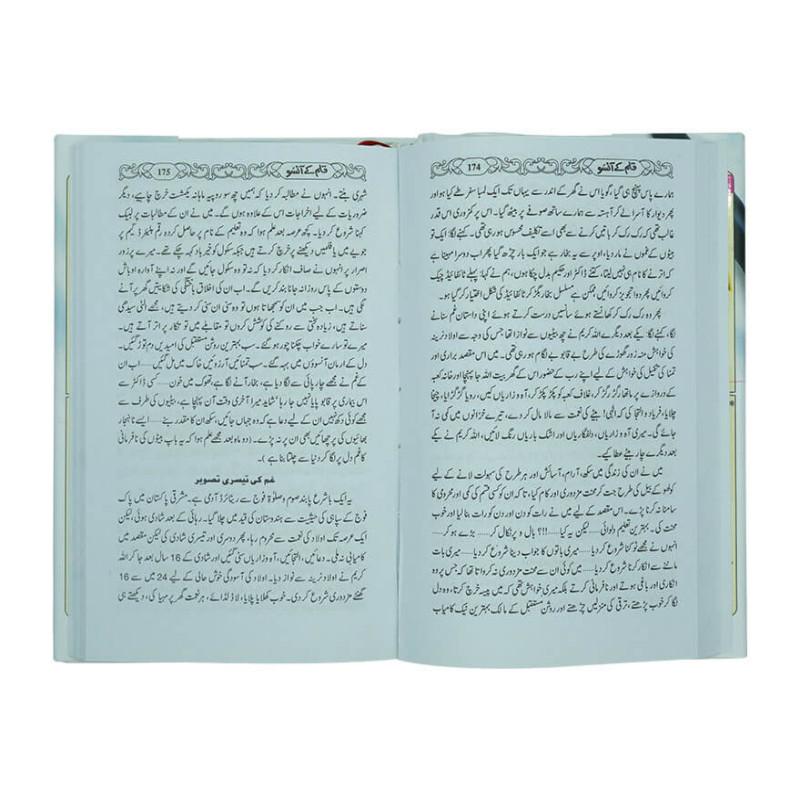 174 قلم کے آنسو
ہمارے پاس پہنچ ہی گیا، گویا اس نے گھر کے اندر سے یہاں تک ایک لمبا سفر طے کیا ہو اور
پھر دیوار کا آسرا لے کر آہستہ سے ہمارے ساتھ صوفے پر بیٹھ گیا۔ اس پر کمزوری اس قدر
غالب تھی کہ رک رک کر باتیں کرنے سے بھی اسے تکلیف محسوس ہو رہی تھی۔ کہنے لگا: ایک تو
بیٹوں کے غموں نے مار دیا، اوپر سے یہ بخار ہے جو ایک بار چڑھ گیا پھر اب دوسرا مہینا ہے
کہ اترنے کا نام ہی نہیں لیتا، کتنے ڈاکٹر اور حکیم بدل چکا ہوں، ہم نے کہا: پہلے ٹائیفائیڈ چیک
کروائیں پھر دوا تجویز کروائیں ممکن ہے مسلسل بخار بگڑ کر ٹائیفائیڈ کی شکل اختیار کر گیا ہو۔
پھر وہ رک رک کر کھانستے ہوئے سانسیں درست کرتے ہوئے اپنی داستان غم سنانے
لگا، کہنے لگا: یکے بعد دیگرے اللہ کریم نے چھ بیٹیوں سے نوازا تھا جس کی وجہ سے اولاد نرینہ
کی خواہش منہ زور گھوڑے کی طرح بے قابو بے لگام ہو رہی تھی۔ میں اس مقصد براری اور
تمنا کی تکمیل کی خواہش لیے اپنے رب کے حضور اس کے گھر بیت اللہ جا پہنچا اور خانہ کعبہ
کے دروازے پر ماتھا رگڑ رگڑ کر، غلاف کعبہ کو پکڑ پکڑ کر، آہ و زاریاں کیں، رویا گڑگڑایا، چیخا
چلایا، فریاد و التجا کی کہ الٰہی! بیٹے کی نعمت سے مالا مال کر دے، تیرے خزانوں میں کمی نہ آ
جائے گی۔ میری آہ و زاریاں، دلفگاریاں اور اشک باریاں رنگ لائیں، اللہ کریم نے یکے
بعد دیگرے چار بیٹے عطا کیے۔
میں نے ان کی زندگی میں سکھ، آرام، آسائش اور ہر طرح کی سہولت لانے کے لیے
کولھو کے بیل کی طرح جت کر محنت مزدوری اور کام کیا، تا کہ ان کو کسی قسم کی کمی اور محرومی کا
سامنا نہ کرنا پڑے۔ اس مقصد کے لیے میں نے رات کو دن اور دن کو رات بنا لیا اور خوب
محنت کی۔ بہترین تعلیم دلوائی..... لیکن یہ کیا.....!!؟؟ بال و پر نکال کر..... بڑے ہو کر.....
انہوں نے مجھے نوکنا شروع کر دیا..... میری باتوں کا جواب دینا شروع کر دیا..... میری بات
ماننے سے انکار کرنا شروع کر دیا..... میں کوئی ان سے محنت مزدوری نہ کرواتا تھا کہ جس پر وہ
انکاری اور باغی ہوتے اور نافرمانی کرتے بلکہ میری خواہش تھی کہ میں پیسہ خرچ کرتا، وہ دل
لگا کر خوب پڑھتے، ترقی کی منزلیں چڑھتے اور روشن مستقبل کے مالک بہترین نیک کامیاب
175 قلم کے آنسو
شہری بنتے۔ انہوں نے مطالبہ کر دیا کہ ہمیں چھ سو روپیہ ماہانہ یکمشت خرچ چاہیے، دیگر
ضروریات کے لیے اخراجات اس کے علاوہ ہوں گے۔ میں نے ان کے مطالبات پر لبیک
کہنا شروع کر دیا۔ کچھ عرصہ بعد علم ہوا کہ وہ تعلیم کے نام پر حاصل کردہ رقم بلیئرڈ گیم پر
جوے میں یا فلمیں دیکھنے پر خرچ کرتے ہیں جبکہ سکول کو خیر باد کہہ چکے تھے۔ میرے
اصرار پر انہوں نے صاف انکار کر دیا کہ نہ تو وہ سکول جائیں گے اور نہ اپنے آوارہ اوباش
دوستوں کے پاس روزانہ جانا بند کریں گے۔ اب ان کی اخلاق باختگی کی شکایتیں گھر پر آنے
لگی ہیں۔ اب جب میں ان کو سمجھاتا ہوں تو وہ سنی ان سنی کر دیتے ہیں، مجھے الٹی سیدھی
سناتے ہیں، زیادہ سختی سے روکنے کی کوشش کروں تو مقابلے میں تو تکار پر اتر آتے ہیں۔
میرے تو سارے خواب چکنا چور ہو گئے۔ سب بہترین روشن مستقبل کی امیدیں دم توڑ گئیں۔
دل کے ارمان آنسوؤں میں بہہ گئے۔ سب تمنائیں آرزوئیں خاک میں مل گئیں..... اب ان
کے غم نے مجھے چارپائی سے لگا دیا ہے، بخار آنے لگا ہے، تھوک میں خون..... کسی ڈاکٹر سے
اس بیماری پر قابو پایا نہیں جا رہا، شاید میرا آخری وقت آن پہنچا ہے، بیٹیوں کی طرف سے
مجھے کوئی دکھ نہیں ان کے لیے دعا ہے کہ وہ جہاں جائیں، سکھ ان کا مقدر بنے..... ایسے ناہنجار
بھائیوں کی پرچھائیں بھی ان پر نہ پڑے۔ (دو ماہ بعد مجھے علم ہوا کہ یہ باپ بیٹوں کی نافرمانی
کا غم دل پر لگا کر دنیا سے چلتا بنا ہے)۔
غم کی تیسری تصویر
یہ ایک باشرع پابند صوم و صلوٰۃ فوج سے ریٹائرڈ آدمی ہے۔ مشرقی پاکستان میں پاک
فوج کے سپاہی کی حیثیت سے ہندوستان کی قید میں چلا گیا۔ رہائی کے بعد شادی ہوئی، لیکن
ایک عرصہ تک اولاد کی نعمت سے محروم رہا، پھر دوسری اور تیسری شادی کی لیکن مقصد میں
کامیابی نہ ملی۔ دعائیں، التجائیں، آہ و زاریاں سنی گئیں اور شادی کے 16 سال بعد جا کر اللہ
کریم نے اولاد نرینہ سے نواز دیا۔ اولاد کی آسودگی خوش حالی کے لیے 24 میں سے 16
گھنٹے مزدوری شروع کر دی۔ خوب کھلایا پلایا، لاڈ لڈائے، ہر نعمت گھر پر مہیا کی، دیکھتے ہی